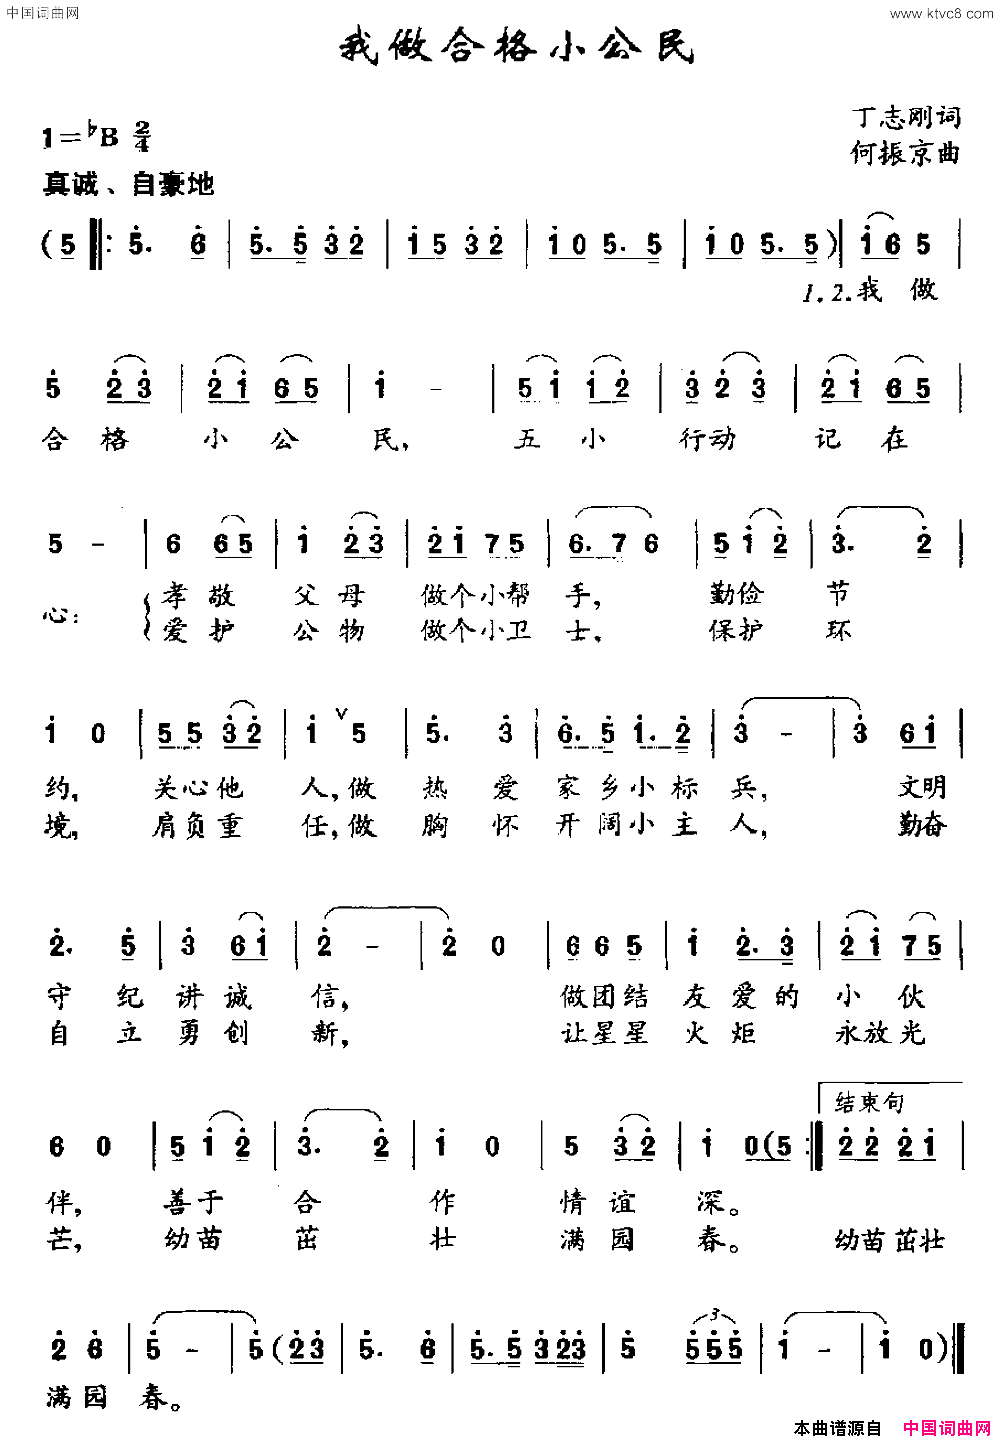 中国词曲网
www.ktvc8.com
我做合格小公民
丁志刚词
1=♭B 2/4
何振京曲
真诚、自豪地
(5 ‖: 5. 6 | 5. 5 3 2 | 1 5 3 2 | 1 0 5. 5 | 1 0 5. 5 ) | 1 6 5 |
1.2.我 做
5 2 3 | 2 1 6 5 | 1 - | 5 1 1 2 | 3 2 3 | 2 1 6 5 |
合 格 小 公 民, 五 小 行动 记 在
5 - | 6 6 5 | 1 2 3 | 2 1 7 5 | 6. 7 6 | 5 1 2 | 3. 2 |
心: 孝 敬 父 母 做个小帮 手, 勤俭 节
爱 护 公 物 做个小卫 士, 保护 环
1 0 | 5 5 3 2 | 1 ∨ 5 | 5. 3 | 6. 5 1. 2 | 3 - | 3 6 1 |
约, 关心他 人,做 热 爱 家乡小标 兵, 文明
境, 肩负重 任,做 胸 怀 开阔小主 人, 勤奋
2. 5 | 3 6 1 | 2 - | 2 0 | 6 6 5 | 1 2. 3 | 2 1 7 5 |
守 纪 讲诚 信, 做团结 友 爱的 小 伙
自 立 勇创 新, 让星星 火 炬 永放光
结束句
6 0 | 5 1 2 | 3. 2 | 1 0 | 5 3 2 | 1 0 (5 :‖ 2 2 2 1 |
伴, 善于 合 作 情谊 深。
芒, 幼苗 茁 壮 满园 春。 幼苗茁壮
2 6 | 5 - | 5 (2 3 | 5. 6 | 5. 5 3 2 3 | 5 5 5 5 | 1 - | 1 0 ) ‖
3
满园 春。
本曲谱源自 中国词曲网